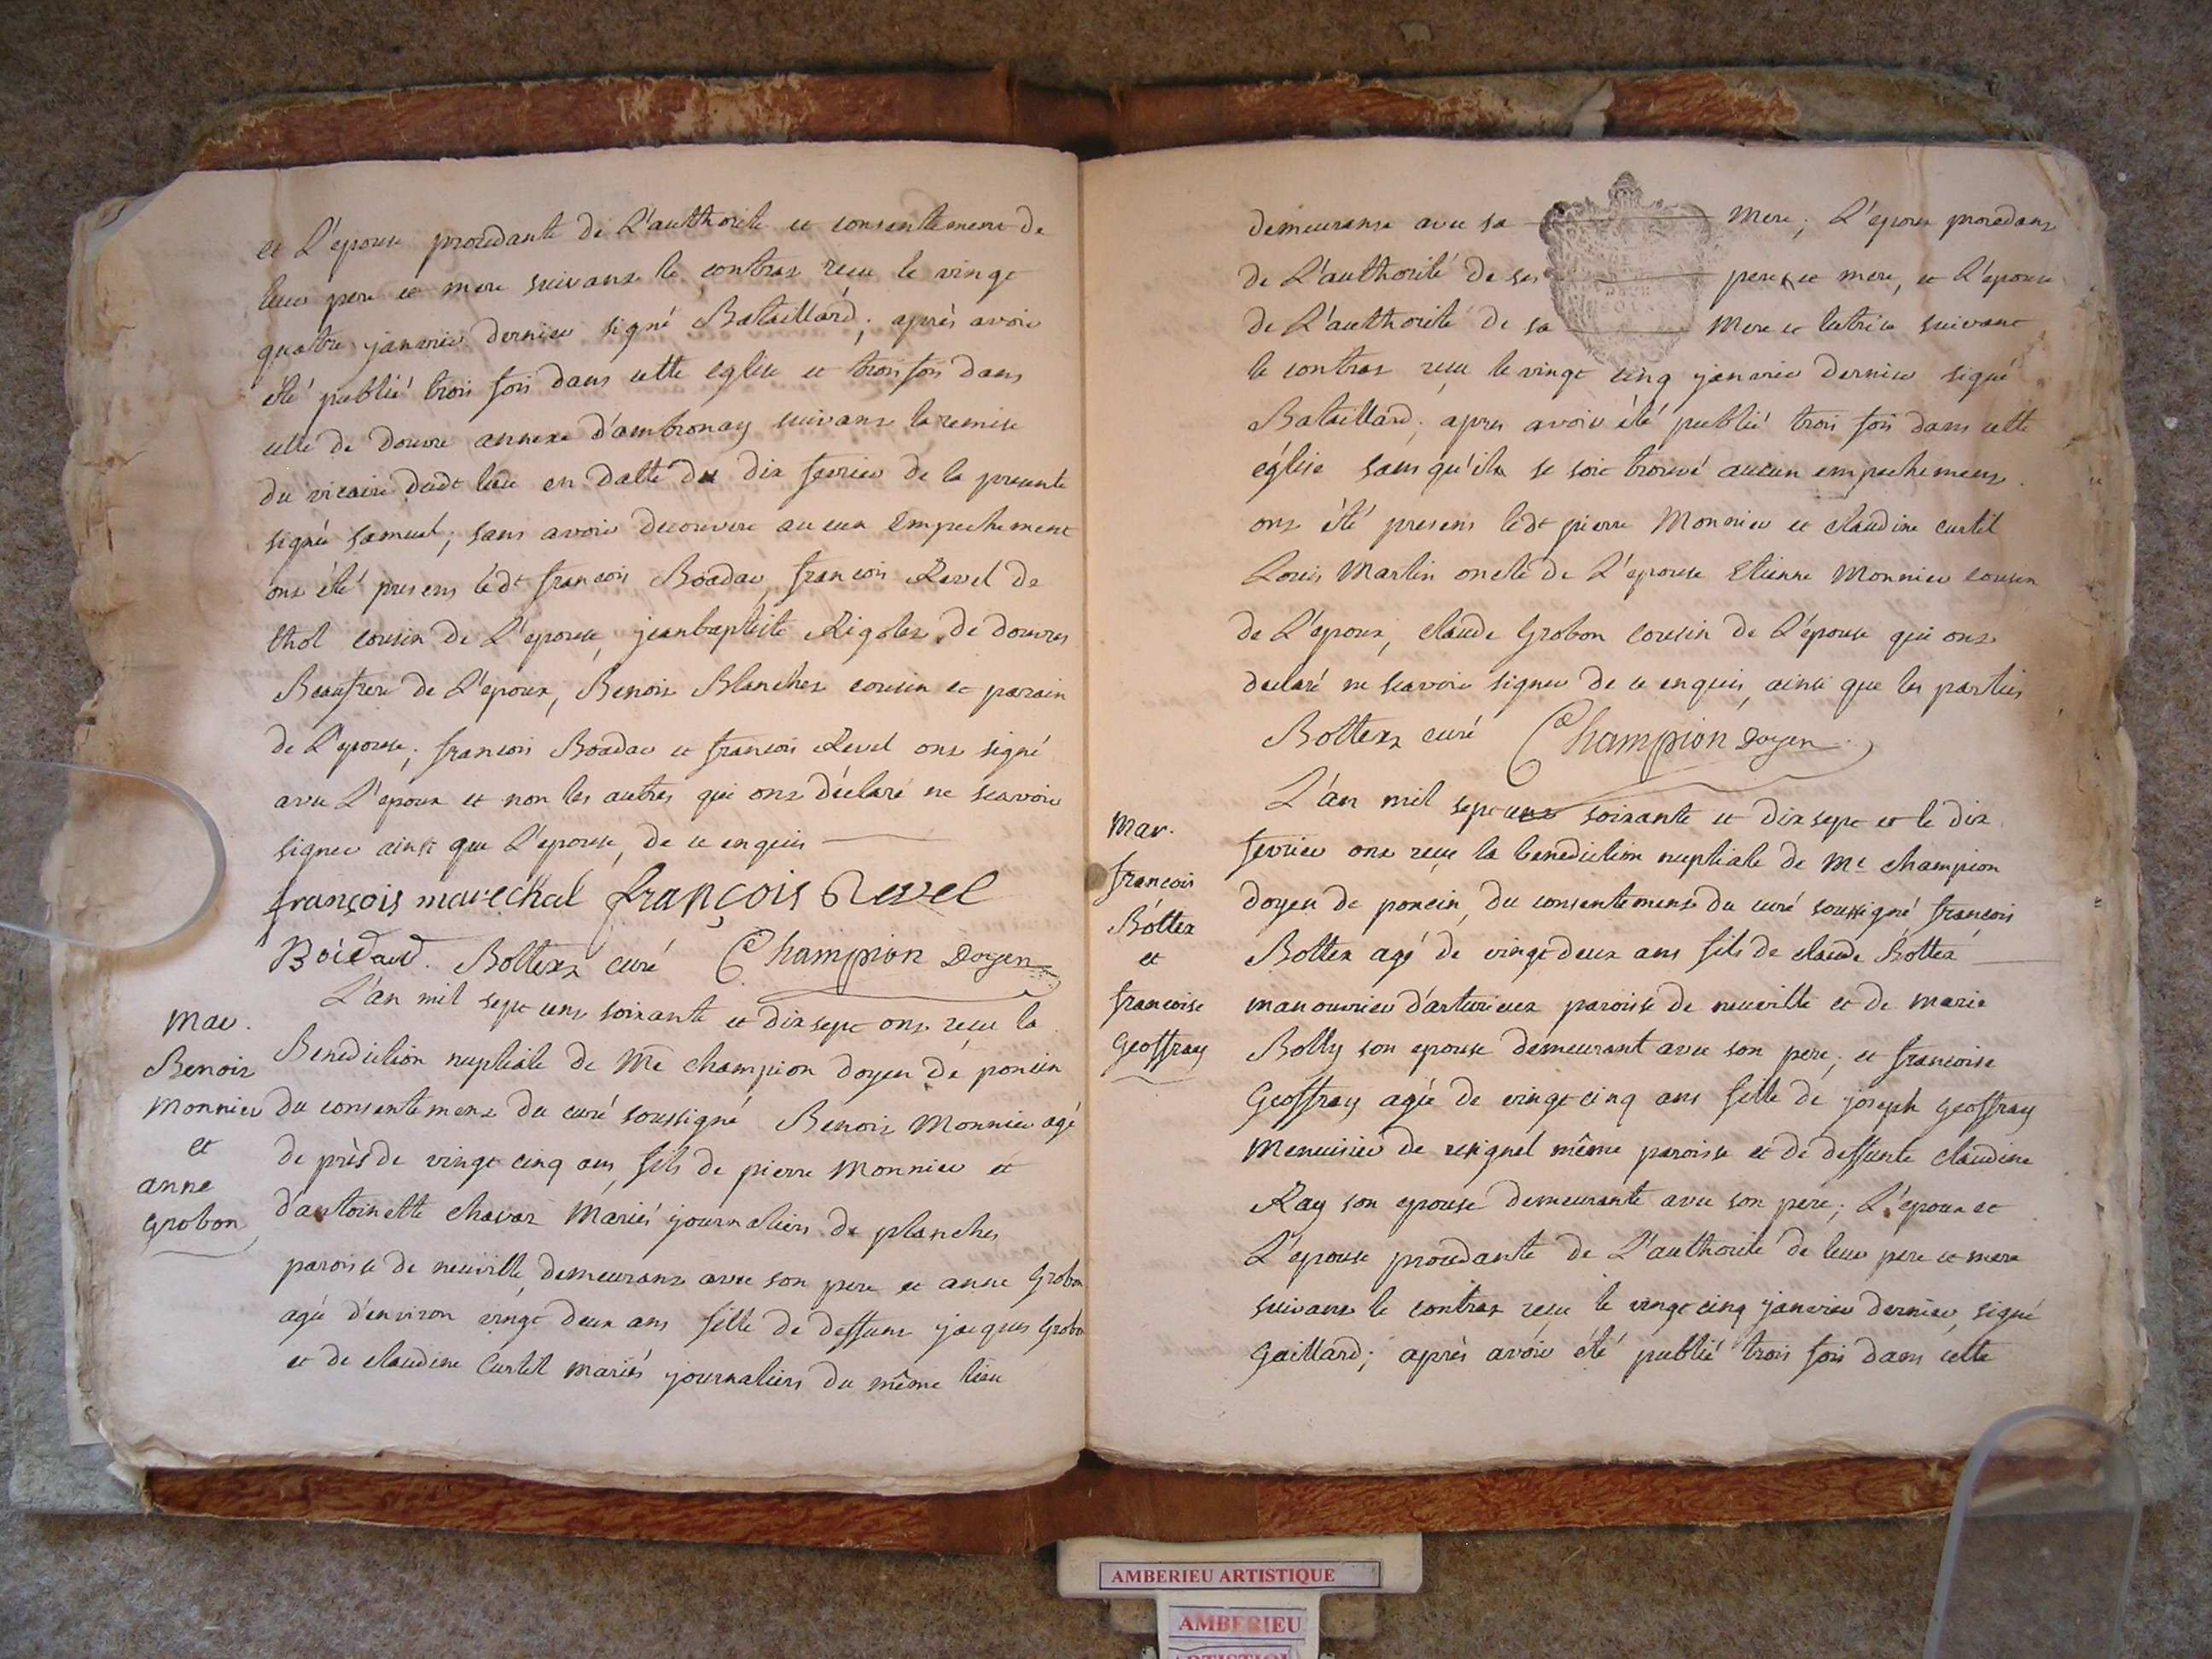 et L'epouse procedante de L'authorité et consentement de
leur pere et mere suivant le contrat reçu le vingt
quatre janvier dernier signé Bataillard; après avoir
été publié trois fois dans cette eglise et trois fois dans
celle de douvre annexe d'ambronay suivant la remise
du vicaire dudt lieu en datte du dix fevrier de la presente
signé samuel; sans avoir decouvert aucun Empechement
ont été presens ledt françois françois Revel de
thol cousin de L'epouse, jeanbaptiste Rigolet de douvres
Beaufrere de L'epoux, Benoit Blanchet cousin et parain
de L'epouse; françois et françois Revel ont signé
avec L'epoux et non les autres qui ont déclaré ne scavoir
signer ainsi que L'epouse, de ce enquis
françois marechal françois Revel
Bottex curé Champion Doyen
Mar.
Benoit
Monnier
et
anne
grobon
L'an mil sept cent soixante et dix sept ont reçu la
Benediction nuptiale de Me champion doyen de poncin
du consentement du curé soussigné Benoit Monnier agé
de près de vingt cinq ans, fils de pierre Monnier et
d'antoinette chavat Mariés journaliers de planches
paroisse de neuville, demeurant avec son pere et anne Grobon
agée d'environ vingt deux ans fille de deffunt jacques Grobon
et de claudine Curtil mariés journaliers du même lieu
demeurante avec sa Mere; L'epoux procedant
de L'authorité de ses pere et mere, et L'epouse
de L'authorité de sa Mere et tutrice suivant
le contrat reçu le vingt cinq janvier dernier signé
Bataillard; apres avoir été publié trois fois dans cette
église sans qu'il se soit trouvé aucun empechement
ont été presens ledt pierre Monnier et claudine curtil
Louis Martin oncle de L'epouse Etienne Monnier cousin
de L'epoux, claude Grobon cousin de L'épouse qui ont
declaré ne scavoir signer de ce enquis, ainsi que les parties
Bottex curé Champion Doyen
Mar.
françois
Bottex
et
francoise
Geoffray
L'an mil sept cent soixante et dix sept et le dix
fevrier ont reçu la benediction nuptiale de Me champion
doyen de poncin, du consentement du curé soussigné françois
Bottex agé de vingt deux ans fils de claude Bottex
manouvrier d'arturieux paroisse de neuville et de marie
Bolly son epouse demeurant avec son pere; et francoise
Geoffray agée de vingt cinq ans fille de joseph Geoffray
Menuisier de resignel même paroisse et de deffunte claudine
Ray son epouse demeurante avec son pere; L'epoux et
L'epouse procedante de L'authorité de leur pere et mere
suivant le contrat reçu le vingt cinq janvier dernier, signé
Gaillard; après avoir été publié trois fois dans cette
AMBERIEU ARTISTIQUE
AMBERIEU
ARTISTIQUE